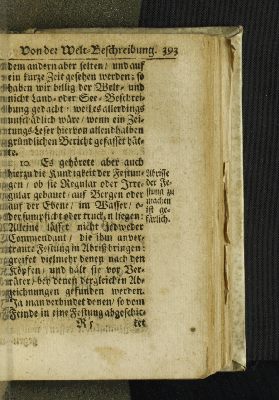 Von der Welt-Beschreibung. 393
dem andern aber selten / und auf
ein kurze Zeit gesehen werden; so
haben wir billig der Welt- und
nicht Land- oder See- Beschrei-
bung gedacht / weil es allerdings
unschädlich wäre / wenn ein Zei-
tungs-Leser hiervon allenthalben
gründlichen Bericht gefasset hät-
te.
10. Es gehörete aber auch
hierzu die Kundigkeit der Festun-
gen / ob sie Regular oder Irre-
gular gebauet / auf Bergen oder
auf der Ebene / im Wasser / o-
der sumpficht oder trucken liegen:
Alleine lässet nicht jedweder
Commendant / die ihm anver-
traute Festung in Abriß bringen:
greiffet vielmehr denen nach den
Köpfen / und hält sie vor Ver-
räter / bey denen dergleichen Ab-
zeichnungen gefunden werden.
Ja man verbindet denen / so vom
Feinde in eine Festung abgeschic-
Abrisse
der Fe-
stung zu
machen
ist ge-
färlich.
R 5 ket